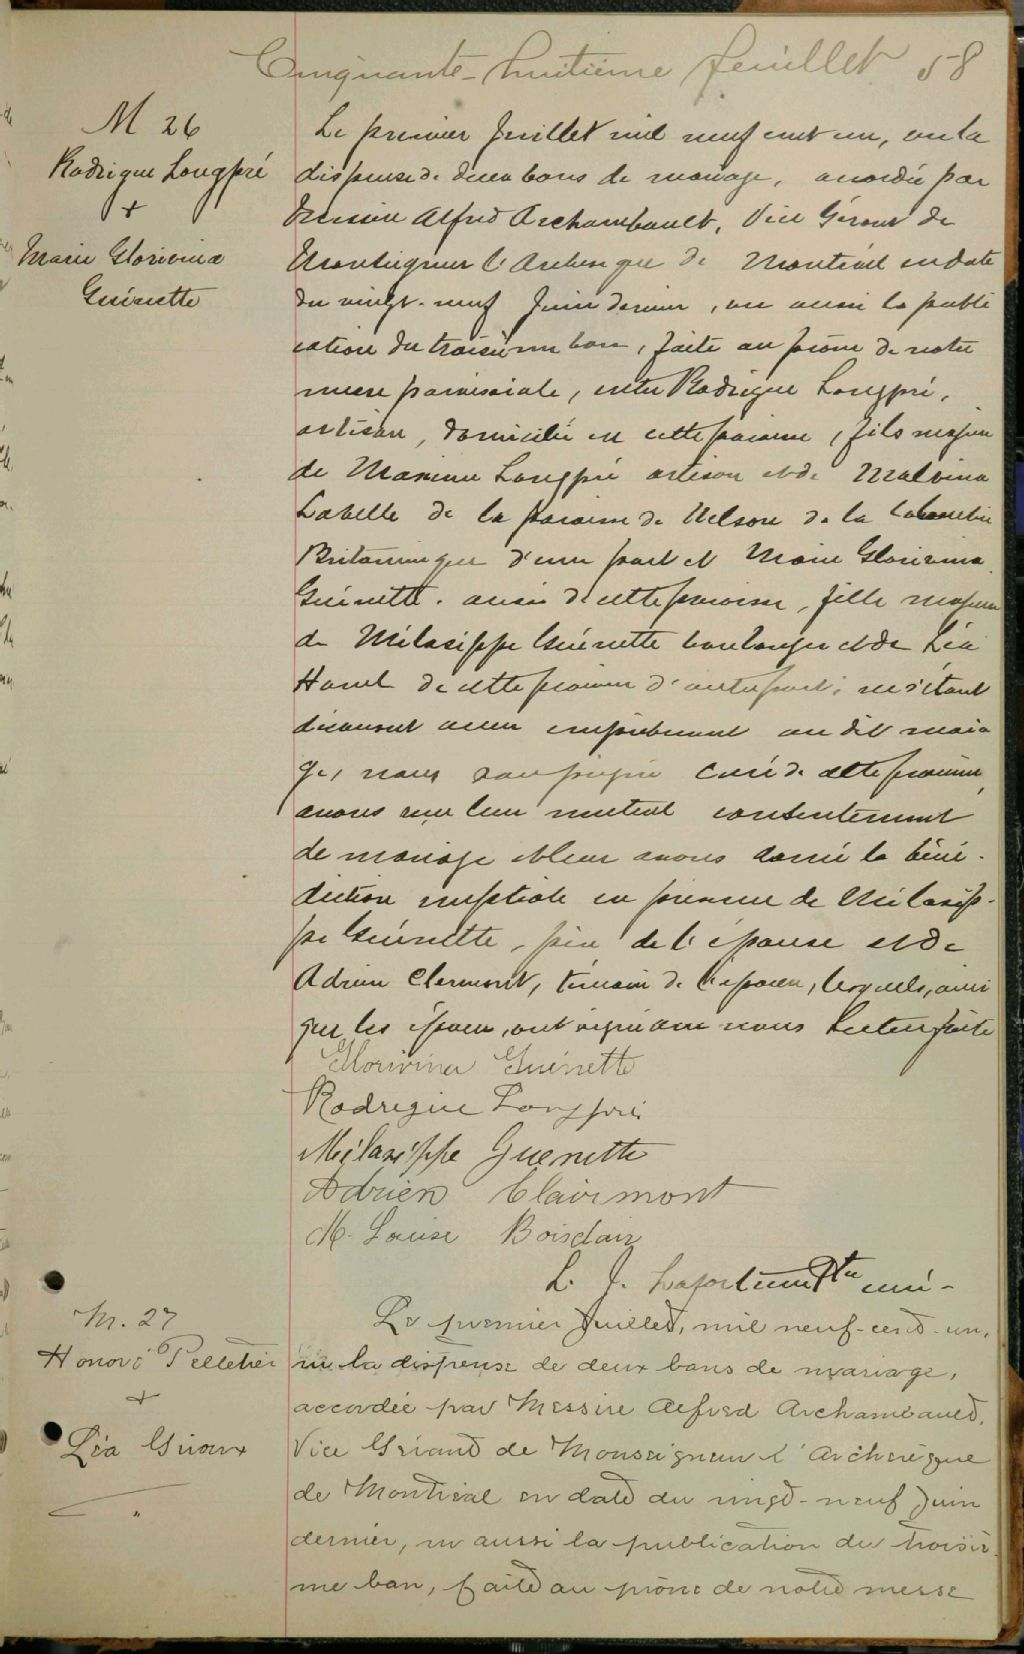 Cinquante-huitième feuillet 58
M 26
Rodrigue Longpré
+
Marie Glorivina
Guénette
Le premier Juillet mil neuf cent un, vu la
dispense de deux bans de mariage, accordée par
Messire Alfred Archambault, Vice Gérant de
Monseigneur l'Archevêque de Montréal en date
du vingt-neuf Juin dernier, vu aussi la publi
cation du troisième ban, faite au prône de notre
messe paroissiale, entre Rodrigue Longpré,
artisan, domicilié en cette paroisse, fils majeur
de Maxime Longpré artisan et de Malvina
Labelle de la paroisse de Nelson de la Colombie
Britannique d'une part et Marie Glorivina
Guénette. aussi de cette paroisse, fille majeure
de Mélasippe Guénette boulanger et de Léa
Hamel de cette paroisse d'autre part; ne s'étant
découvert aucun empêchement au dit maria
ge, nous soussigné curé de cette paroisse,
avons reçu leur mutuel consentement
de mariage et leur avons donné la béné-
diction nuptiale en présence de Mélasip-
pe Guénette, père de l'épouse et de
Adrien Clermont, témoin de l'époux, lesquels, ainsi
que les époux, ont signé avec nous Lecture faite
Glorivina Guénette
Rodrigue Longpré
Mélasippe Guenette
Adrien Clairmont
M. Louise Boisclair
L. J. Lafortune Ptre curé-
M. 27
Honoré Pelletier
+
Léa Giroux
Le premier Juillet, mil neuf-cent-un,
vu la dispense de deux bans de mariage,
accordée par Messire Alfred Archambault,
Vice Gérant de Monseigneur l'Archevêque
de Montréal en date du vingt-neuf Juin
dernier, vu aussi la publication du troisiè-
me ban, faite au prône de notre messe